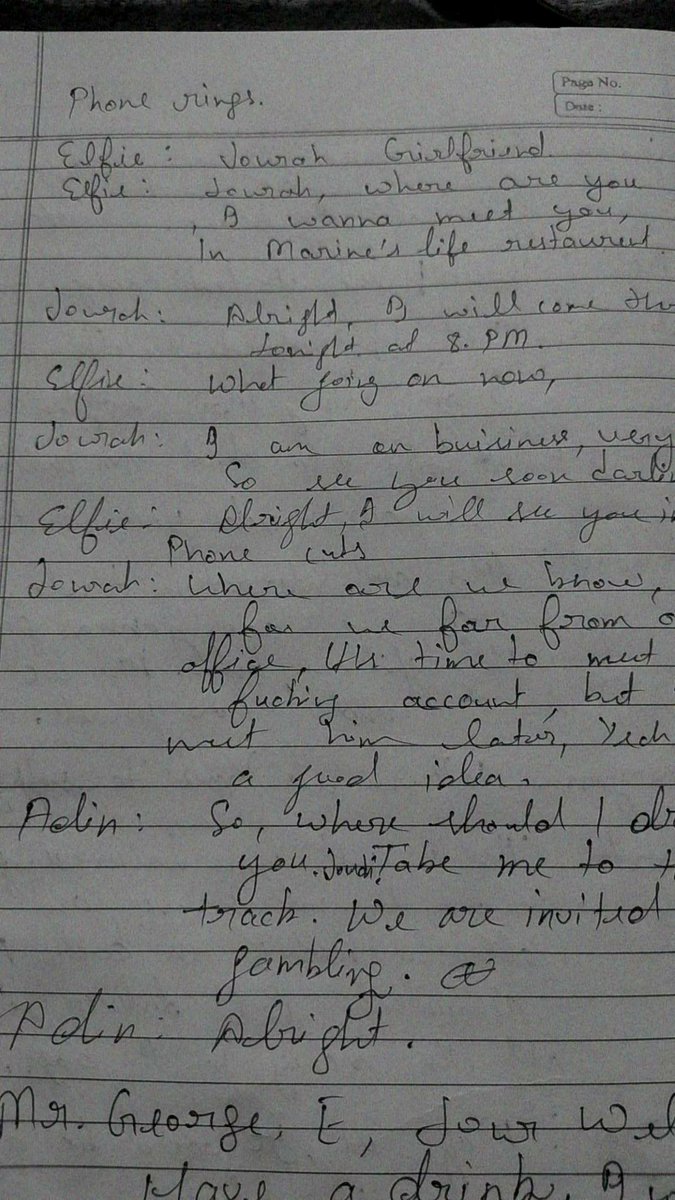 Phone rings.
Page No.
Date:
Elfie: Jowrah Girlfriend.
Elfie: Jowrah, where are you
, I wanna meet you,
In Marine's life restaurent.
Jowrah: Alright, I will come
tonight at 8. PM.
Elfie: What going on now,
Jowrah: I am on buisiness, very
So see you soon
Elfie: Alright, I will see you
Phone cuts
Jowrah: Where are we know,
far we far from
office, time to meet
fucking account, but
meet him later,
a good idea.
Adin: So, where should I
you. Take me to
track. We are invited
gambling.
Adin: Alright.
Mr. George, E, Jowr
Have a drink. I